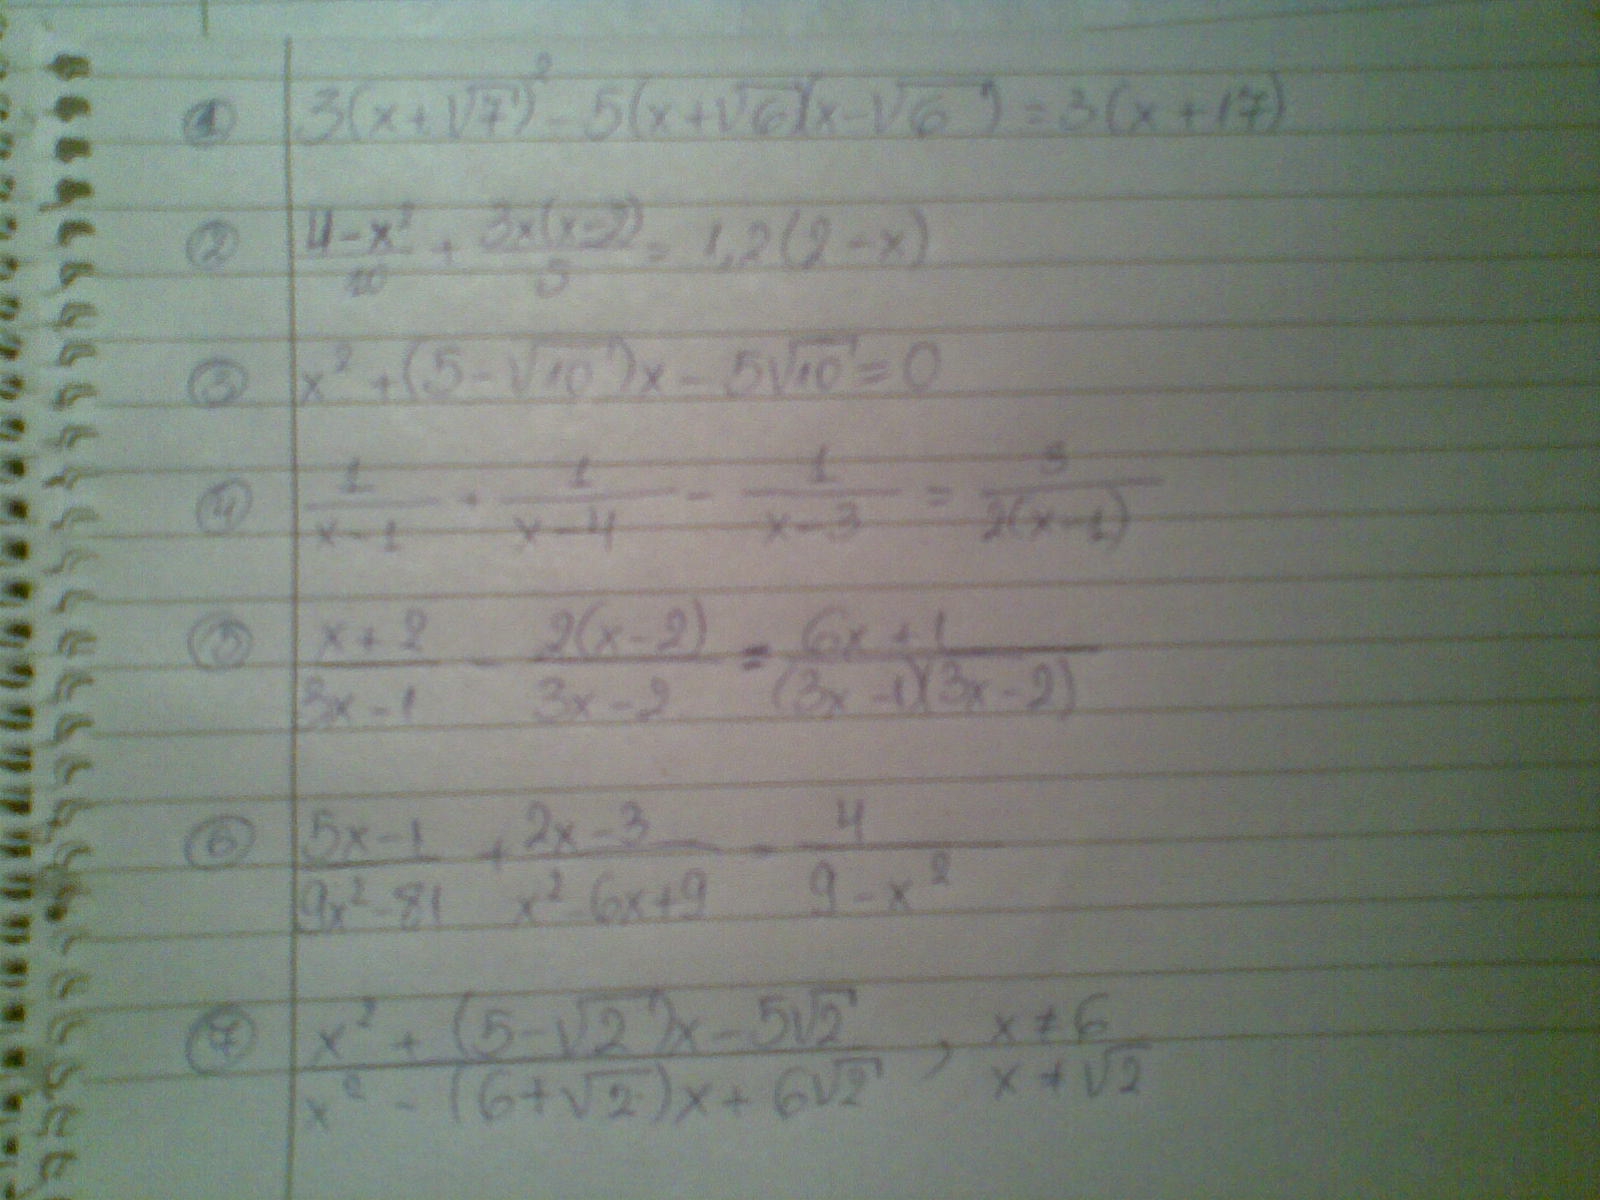 ① 3(x+√7)² - 5(x+√6)(x-√6) = 3(x+17)
② (4-x²)/10 + 3x(x-2)/5 = 1,2(2-x)
③ x² + (5-√10)x - 5√10 = 0
④ 1/(x-1) + 1/(x-4) - 1/(x-3) = 3/(2(x-1))
⑤ (x+2)/(3x-1) - 2(x-2)/(3x-2) = (6x+1)/((3x-1)(3x-2))
⑥ (5x-1)/(9x²-81) + (2x-3)/(x²-6x+9) = 4/(9-x²)
⑦ (x² + (5-√2)x - 5√2)/(x² - (6+√2)x + 6√2) , x≠6 x≠√2